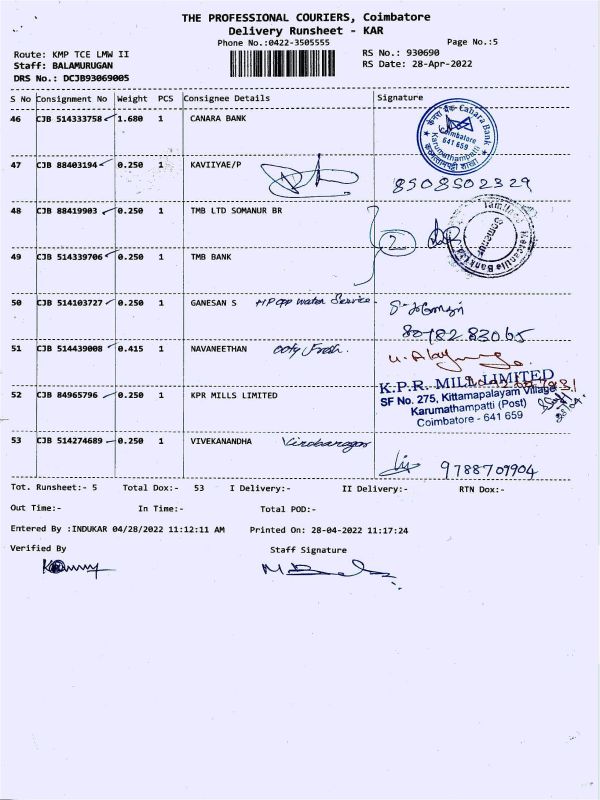 THE PROFESSIONAL COURIERS, Coimbatore
Delivery Runsheet - KAR
Phone No.:0422-3505555
Page No.:5
Route: KMP TCE LMW II
RS No.: 930690
Staff: BALAMURUGAN
RS Date: 28-Apr-2022
DRS No.: DCJB93069005
S No Consignment No Weight PCS Consignee Details Signature
46 CJB 514333758 1.680 1 CANARA BANK
केनरा बैंक Canara Bank
Coimbatore
641 659
Karumathampatti
47 CJB 88403194 0.250 1 KAVIIYAE/P
8508502329
48 CJB 88419903 0.250 1 TMB LTD SOMANUR BR
2
Tamilnad Mercantile Bank Ltd.
Somanur
49 CJB 514339706 0.250 1 TMB BANK
50 CJB 514103727 0.250 1 GANESAN S HP opp water Service
80782 83065
51 CJB 514439008 0.415 1 NAVANEETHAN ooty Fresh.
52 CJB 84965796 0.250 1 KPR MILLS LIMITED
K.P.R. MILL LIMITED
SF No. 275, Kittamapalayam Village
Karumathampatti (Post)
Coimbatore - 641 659
53 CJB 514274689 0.250 1 VIVEKANANDHA
9788709904
Tot. Runsheet:- 5 Total Dox:- 53 I Delivery:- II Delivery:- RTN Dox:-
Out Time:- In Time:- Total POD:-
Entered By :INDUKAR 04/28/2022 11:12:11 AM Printed On: 28-04-2022 11:17:24
Verified By Staff Signature